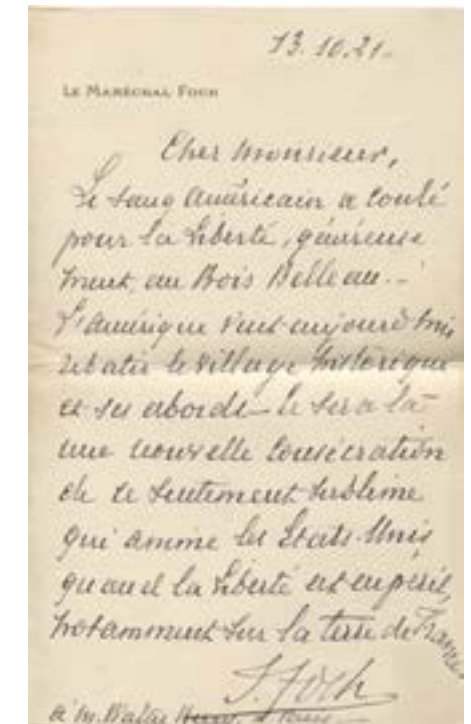 13.10.21.
LE MARÉCHAL FOCH
Cher Monsieur,
Le sang Américain a coulé
pour la liberté, généreuse
ment, au Bois Belleau. –
L'Amérique veut aujourd'hui
rebatir le village historique
et ses abords – Ce sera là
une nouvelle consécration
de ce sentiment sublime
qui anime les Etats-Unis
quand la liberté est en péril,
notamment sur la terre de France
F. Foch
à M. Walter